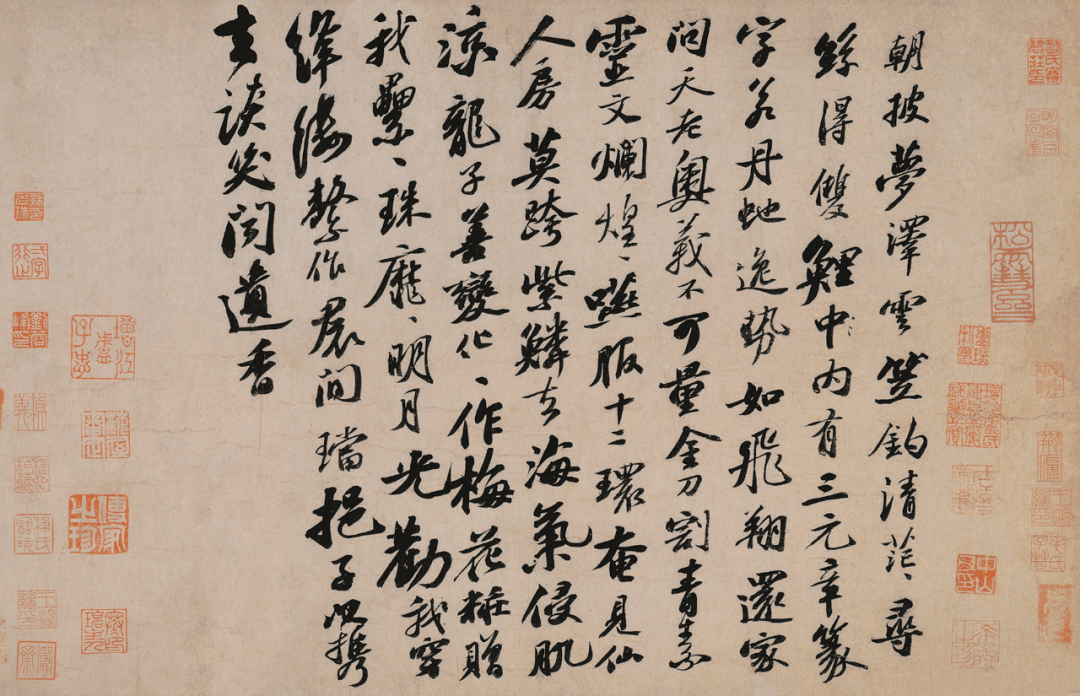 朝披夢澤雲笠釣清茫〻尋
絲得雙鯉中內有三元章篆
字若丹虵逸勢如飛翔還家
問天老奧義不可量金刀割青素
靈文爛煌〻嚥服十二環奄見仙
人房莫跨紫鱗去海氣侵肌
涼龍子善變化〻作梅花粧贈
我纍〻珠靡〻明月光勸我穿
絳縷繫作裙間璫挹子以攜
去談笑聞遺香
傳家
之珍